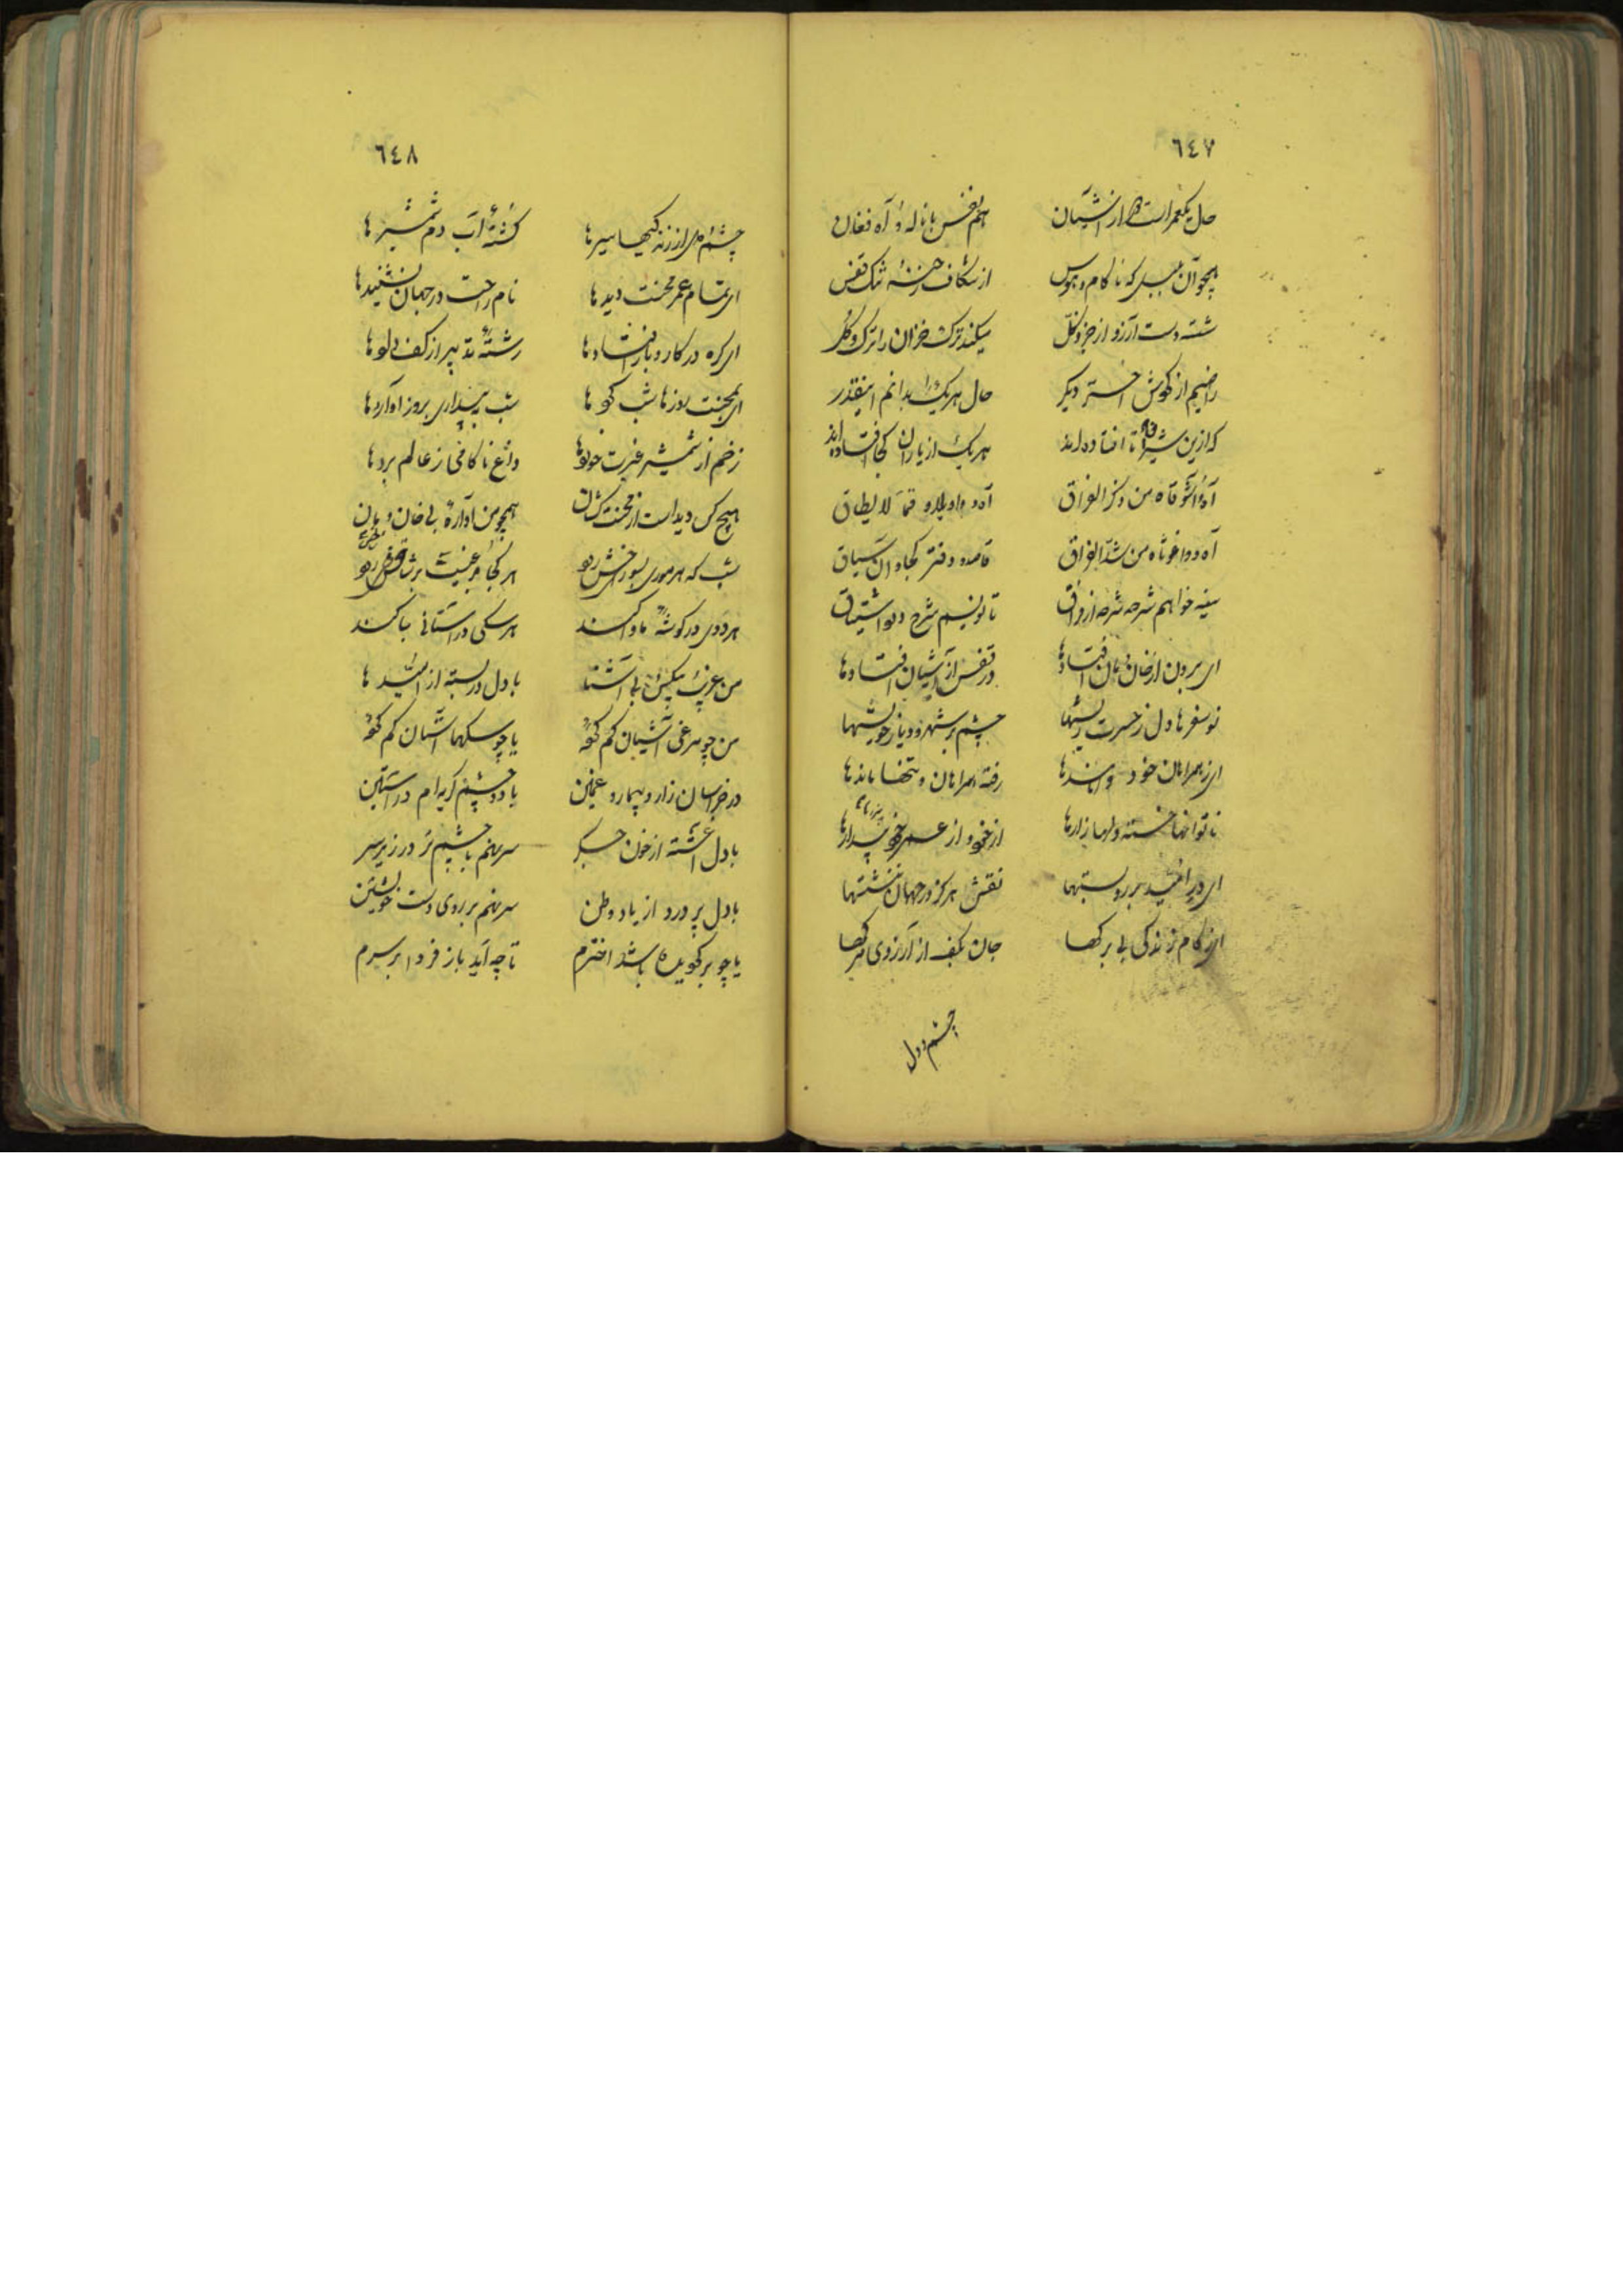 ٦٤٧
حال یکعمر است از آشیان هم نفس با ناله و آه و فغان
همچو آن بلبل که ناکام و هوس از شکاف رخنهٔ تنگ قفس
شسته دست آرزو از جزو و کل میکند ترک خزان را ترک گل
راضیم از گردش اختر دگر حال هر یک را بدانم اینقدر
که ازین شیرازه تا افتاده‌اند هر یک از یاران کجا افتاده‌اند
آه واشوقاه من ذکر الفراق آه و واویلاه و قما لا یطاق
آه و واغوثاه من شد الفراق قاصد و دفتر کجا و آن سیاق
سینه خواهم شرحه شرحه از فراق تا نویسم شرح درد اشتیاق
ای برون از خان و مان افتادها در قفس از آشیان افتادها
نوسفرها دل ز حسرت ریشها چشم بر شهر و دیار خویشها
ای ز همراهان خود وامانده‌ها رفته همراهان و تنها مانده‌ها
ناتوانها خسته دلها زارها از خود و از عمر خود بیزارها
ای در امید بر رو بستها نقش هرگز در جهان ننشستها
ای ز کام زندگی بی برگها جان بکف از آرزوی مرگها
چشم و دل
٦٤٨
چشم و دل از زندگیها سیرها کشتهٔ آب دم شمشیرها
ای تمام عمر محنت دیدها نام راحت در جهان نشنیدها
ای گره در کار و بار افتادها رشتهٔ تدبیر از کف دادها
ای بمحنت روزها شب کردها شب ببیداری بروز آوردها
زخم از شمشیر غیرت خوردها داغ ناکامی ز عالم بردها
هیچ کس دیدست از محنت کشان همچو من آوارهٔ بی خان و مان
شب که هر موری بسوراخش رود هر کجا مرغیست بر شاخش رود
هر ددی در گوشهٔ مأوا کند هر سگی در آستانی جا کند
من غریب بیکس بی آشنا با دل دربسته از امیدها
من چو مرغی آشیان گم کرده یا چو سگها آستان گم کرده
در خراسان زار و بیمار و غمین با دو چشم گریه‌ام در آستین
با دل آغشته از خون جگر سر نهم با چشم تر در زیر سر
با دل پر درد از یاد وطن سر نهم بر روی دست خویشتن
تا چه آید باز فردا بر سرم